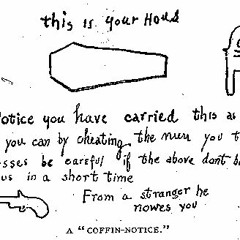 this is your Hous
Notice you have carried this as
you can by cheating the men you t
esses be careful if the above dont b
us in a short time
From a stranger he
nowes you
A "COFFIN-NOTICE."